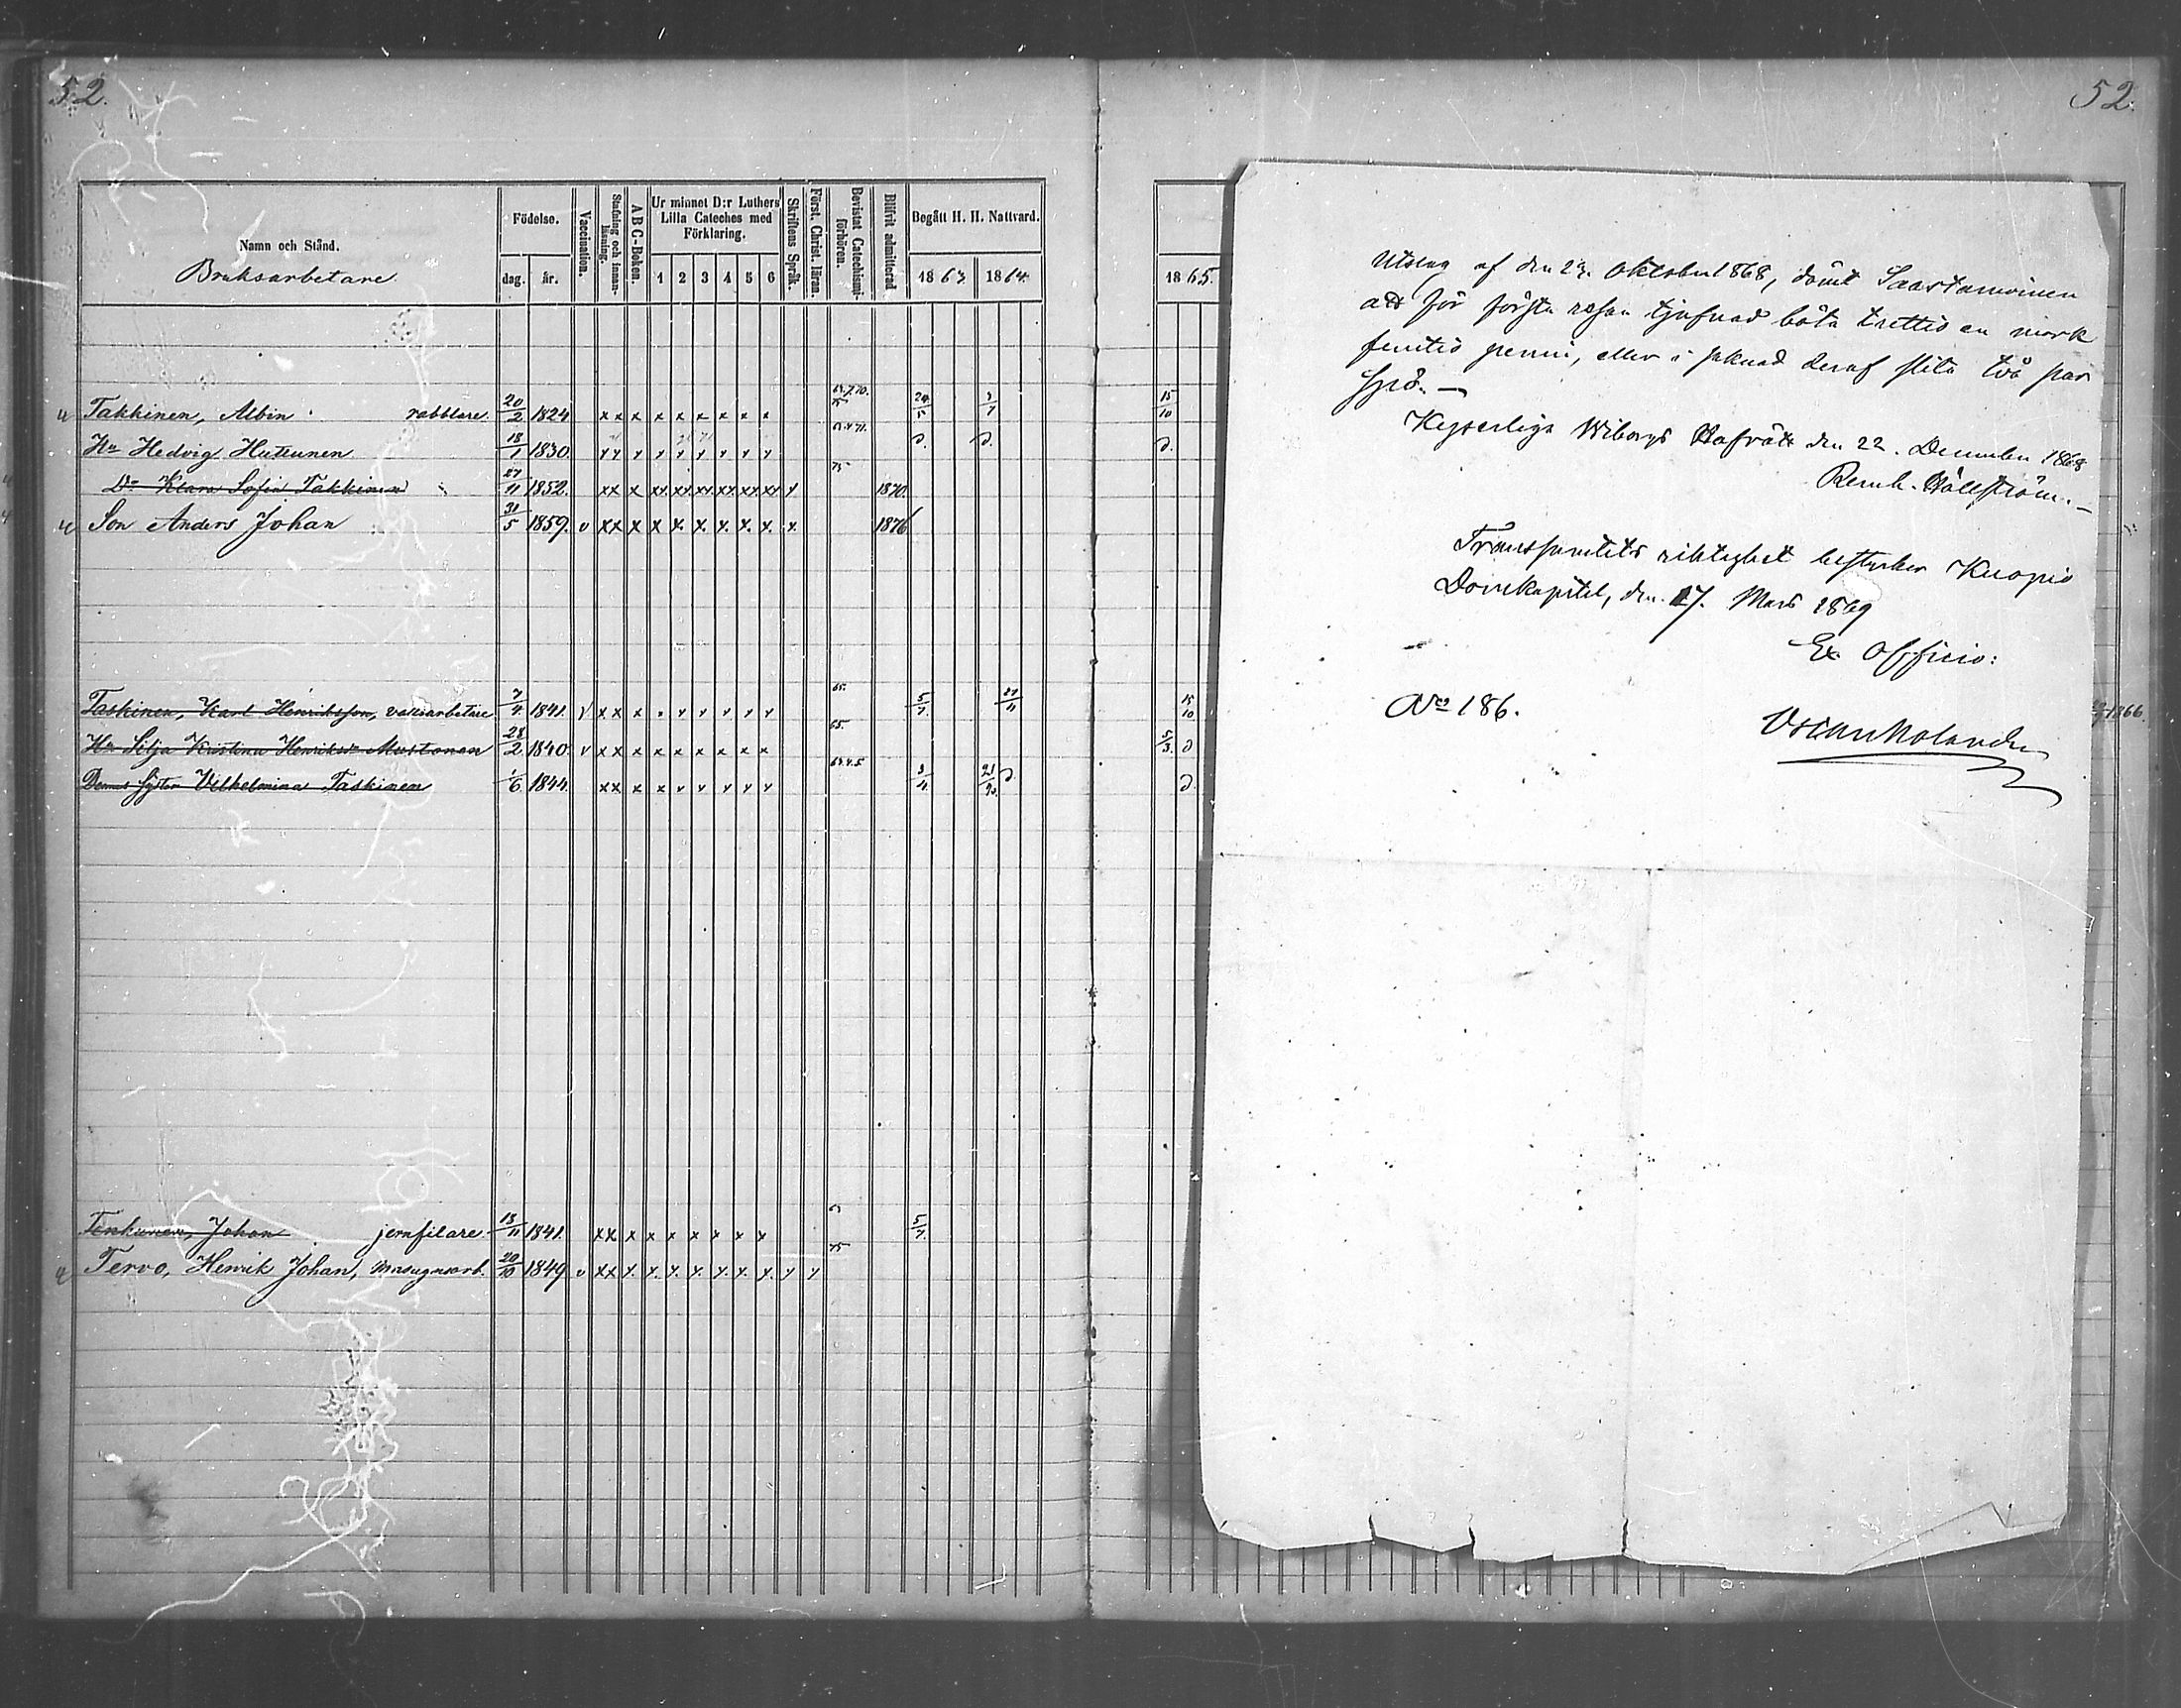 52.
52.
Namn och Stånd.
Bruksarbetare
Födelse.
dag. år.
Vaccination.
Stafning och innanläsning.
A B C-Boken.
Ur minnet D:r Luthers Lilla Cateches med Förklaring.
1 2 3 4 5 6
Skriftens Språk.
Först. Christ. läran.
Bevistat Catechismiförhören.
Blifvit admitterad
Begått H. H. Nattvard.
1863. 1864.
1865.
Takkinen, Albin rabblare. 20/2 1824 x x x x x x x x x 24/5 15/10
Hu Hedvig Hutunen 18/1 1830.
Dr Klara Sofia Takkinen 27/11 1852. xx x xx xx xx xx xx xx 1870.
Son Anders Johan 31/5 1859. v xx x x x. x. x. x. x. x. 1876
Taskinen, Karl Henriksson, 7/4 1841. 65. 15/10 1866.
Hu Silja Kristina Henriksdr Mustonen 28/2 1840 v x x x x x x x x x 65. 5/3.
Dennes syster Vilhelmina Taskinen 1/6 1844.
Johan jernfilare 13/11 1841. xx x x x x x x x
Tervo, Henrik Johan, masugnsarb. 20/10 1849 75
Utslag af den 23. Oktober 1868, dömt Saastamoinen
att för första resan tjufnad böta trettio en mark
femtio penni, eller i saknad deraf slita två par
spö. —
Kejserliga Wiborgs Hofrätt den 22. December 1868
Reinh. Hällström. —
Transsumtets riktighet bestyrker Kuopio
Domkapitel, den 17. Mars 1869
Ex officio:
No 186.